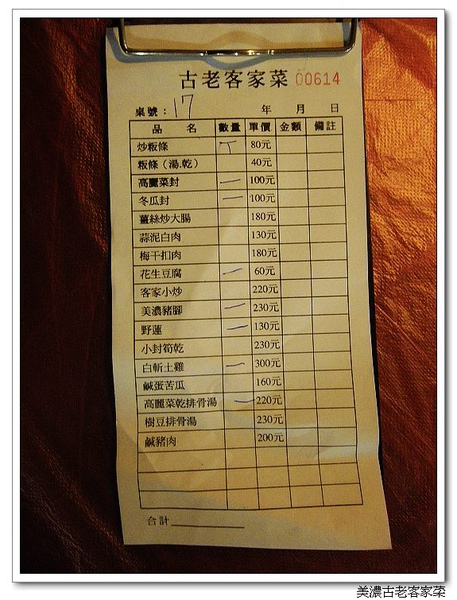 古老客家菜 00614
桌號：17 年 月 日
品 名 數量 單價 金額 備註
炒粄條 丅 80元
粄條（湯.乾） 40元
高麗菜封 一 100元
冬瓜封 一 100元
薑絲炒大腸 180元
蒜泥白肉 130元
梅干扣肉 180元
花生豆腐 一 60元
客家小炒 220元
美濃豬腳 一 230元
野蓮 一 130元
小封筍乾 230元
白斬土雞 一 300元
鹹蛋苦瓜 160元
高麗菜乾排骨湯 一 220元
樹豆排骨湯 230元
鹹豬肉 200元
合計
美濃古老客家菜